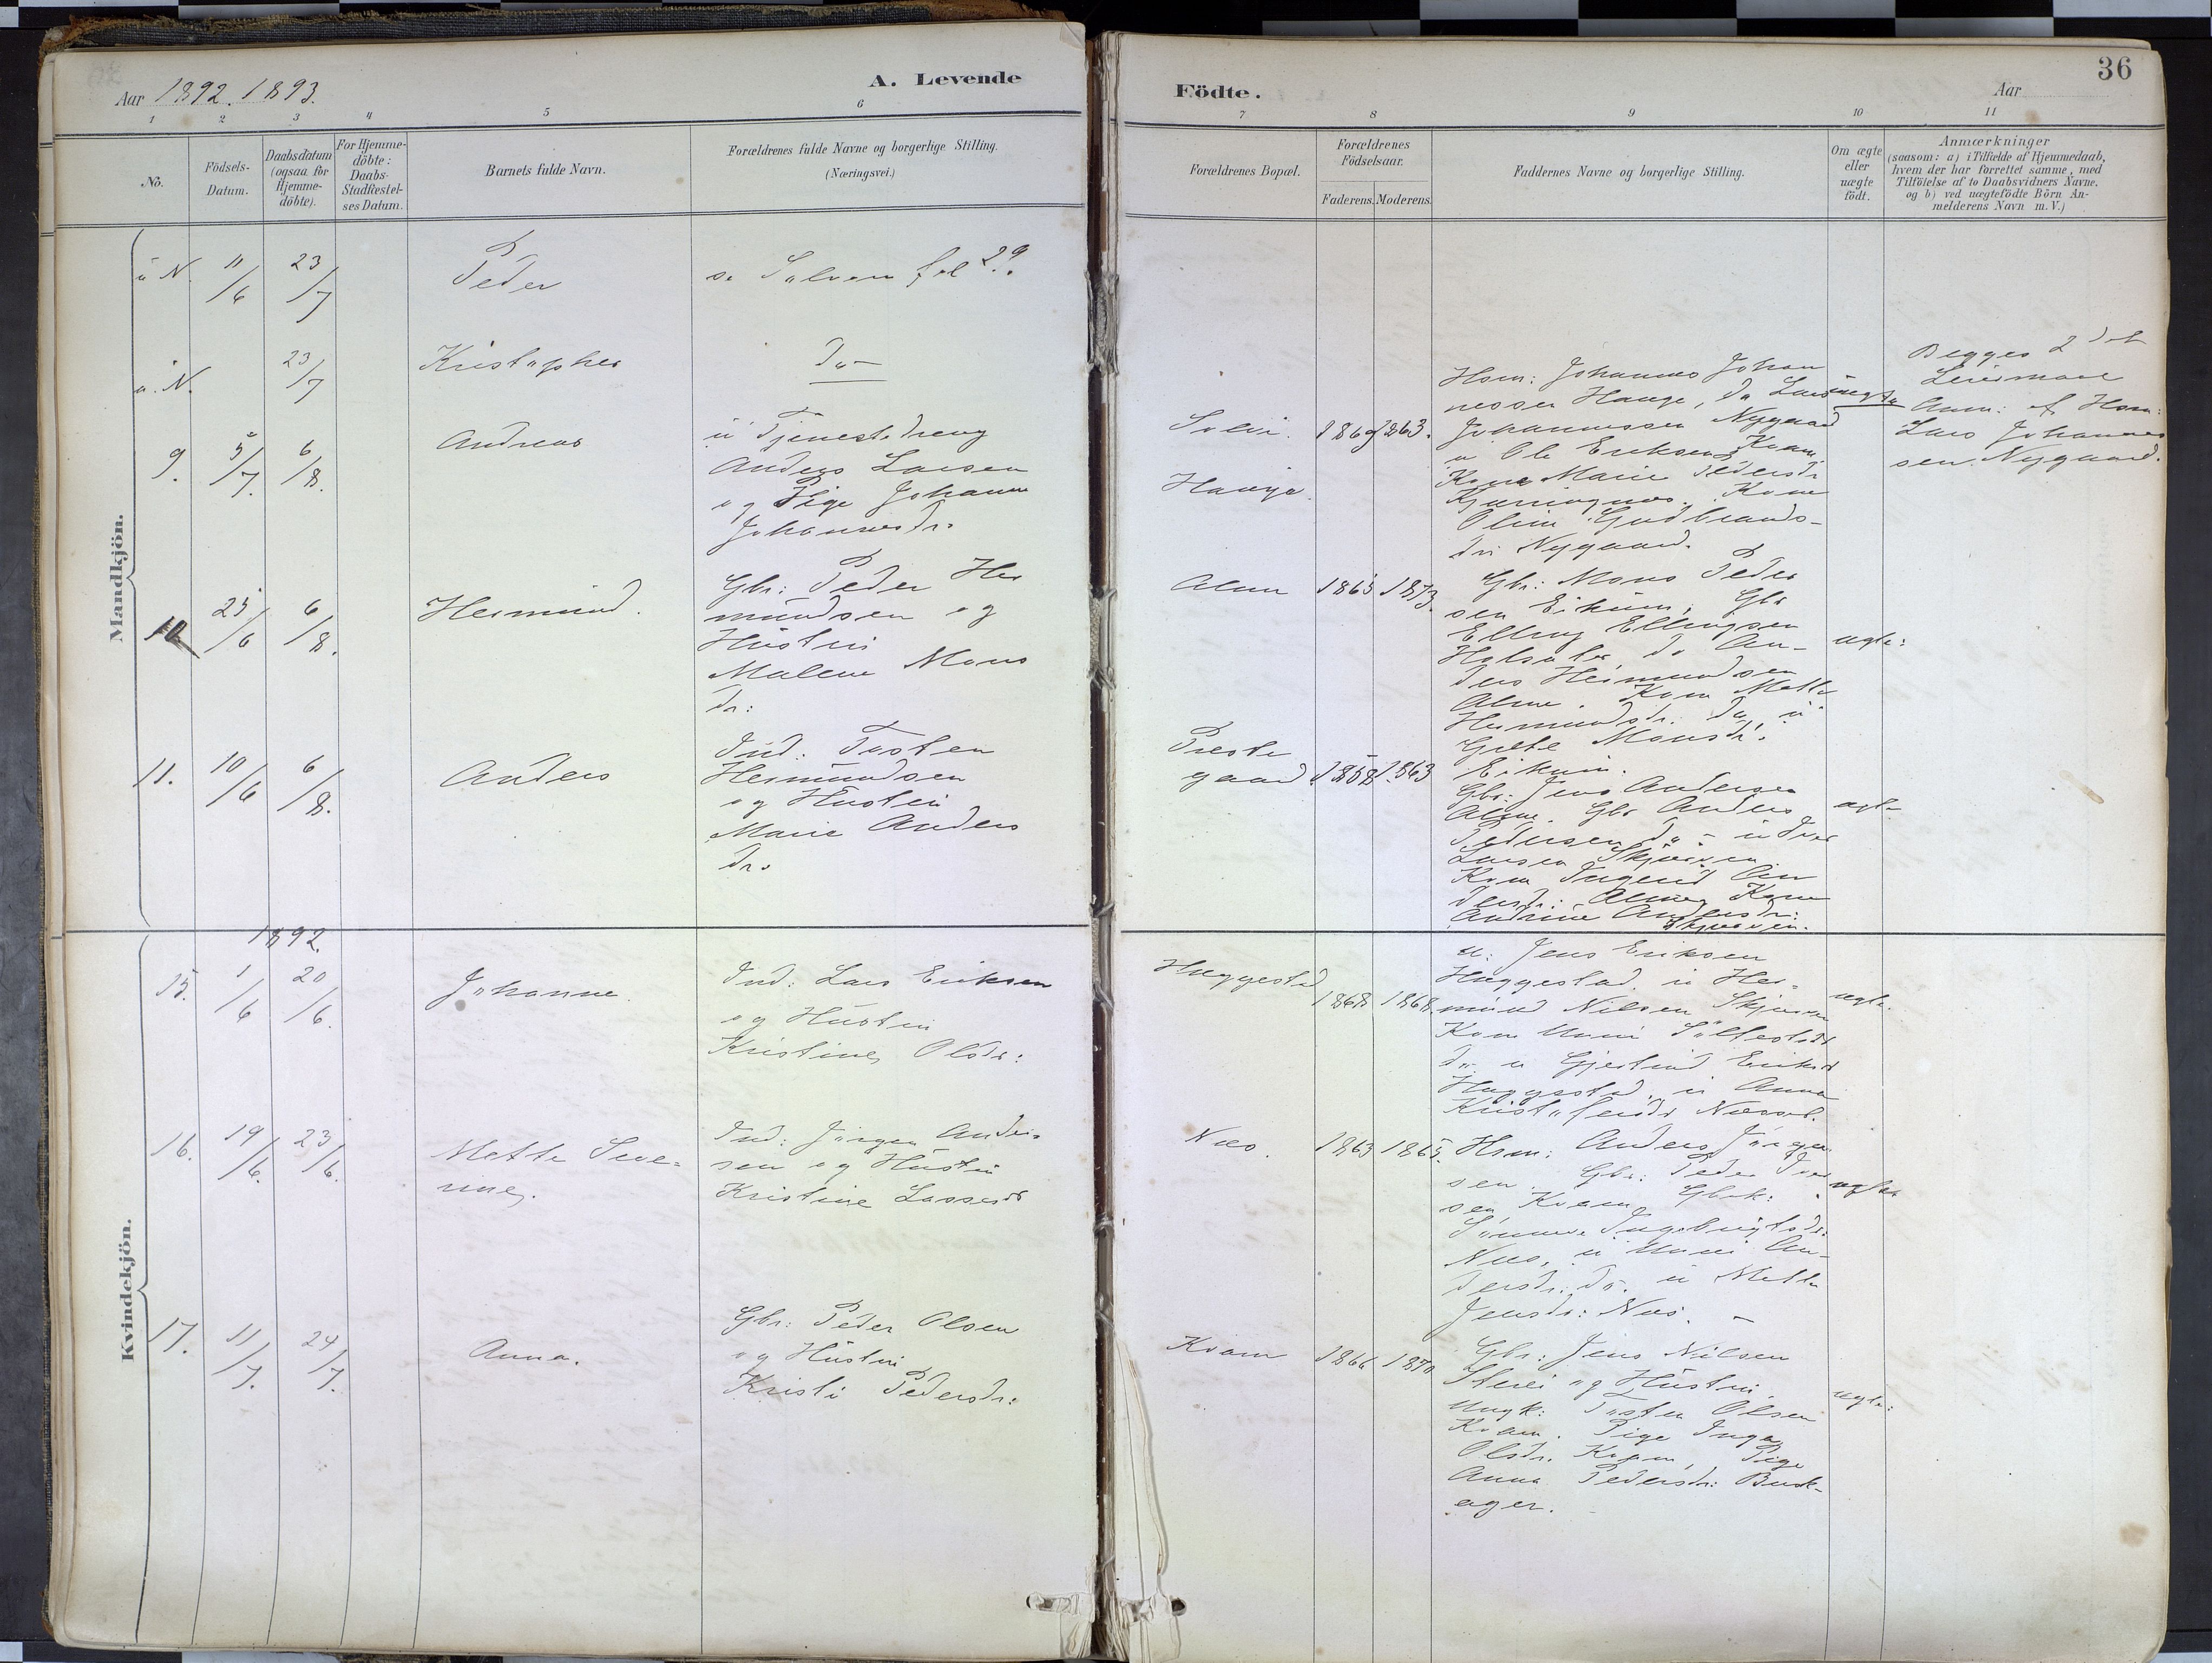 Aar 1892. 1893.
A. Levende
Födte.
Aar
36
1 2 3 4 5 6 7 8 9 10 11
No.
Födsels-
Datum.
Daabsdatum
(ogsaa for
Hjemme-
döbte).
For Hjemme-
döbte:
Daabs-
Stadfæstel-
ses Datum.
Barnets fulde Navn.
Forældrenes fulde Navne og borgerlige Stilling.
(Næringsvei.)
Forældrenes Bopæl.
Forældrenes
Födselsaar.
Faderens. Moderens.
Faddernes Navne og borgerlige Stilling.
Om ægte
eller
uægte
födt.
Anmærkninger
(saasom: a) i Tilfælde af Hjemmedaab,
hvem der har forrettet samme, med
Tilföielse af to Daabsvidners Navne.
og b) ved uægtefödte Börn An-
melderens Navn m.V.)
Mandkjön.
ü N. 11/6 23/7 Peder
fol 29.
ü. N. 23/7 Kristopher
Do
9. 5/7. 6/8. Andreas
ü Tjenestedreng
Anders Larsen
og Pige Johanne
Johannesdr.
1869 1863.
Hsm: Johannes Johan
nessen Hauge, do Lars
Johannessen Nygaard
ü Ole Eriksen Kvam
Kone Marie Pedersdr
Kone
Oline Gudbrands-
dr. Nygaard.
uægte
Begges 2det
Leiermaal
Anm: af Hsm:
Lars Johannes
sen Nygaard.
10 25/6 6/8. Hermund.
Gbr: Peder Her
mundsen og
Hustru
Malene Mons
dr:
Alme 1865 1873.
Gbr: Mons Peder
sen Eikum, Gbr
Elling Ellingsen
do An-
ders Hermundsen
Alme. Kone Mette
Hermundsdr. do, ü
Grethe Monsdr.
Eikum.
ægte:
11. 10/6 6/8. Anders
Ind. Tosten
Hermundsen
og Hustru
Marie Anders
dr.
Preste
gaard 1858 1863
Gbr: Jens Andersen
Alme. Gbr Anders
Pedersen do - ü Iver
Larsen Skjerven
Kone Ingerid An
dersdr: Alme, Kone
Andrine Andersdr:
Skjerven.
ægte
Kvindekjön.
1892.
15. 1/6 20/6. Johanne.
Ind: Lars Eriksen
og Hustru
Kristine Olsdr:
Hæggestad
1868 1868.
ü: Jens Eriksen
Hæggestad. ü Her-
mund Nilsen Skjerven
Kone Unni
do. ü Gjertrud Eriksd
Hæggestad. ü Anna
ægte.
16. 19/6. 23/6. Mette Seve-
rine.
Ind: Jörgen Ander-
sen og Hustru
Kristine Lassesdr
Næs. 1863 1865.
Hsm: Anders Jörgen
sen. Gbr: Peder Iver
sen Kvam, Gbrk:
Sönneve Ingebrigtsdr.
Næs, ü Unni An-
dersdr: do. ü Mette
Jensdr: Næs. -
ægte
17. 11/7. 24/7. Anna.
Gbr: Peder Olsen
og Hustru
Kristi Pedersdr:
Kvam 1866 1870
Gbr: Jens Nilsen
og Hustru.
Ungk: Tosten Olsen
Kvam. Pige Inga
Olsdr. Kvam, Pige
Anna Pedersdr: Busk-
ager.
ægte: